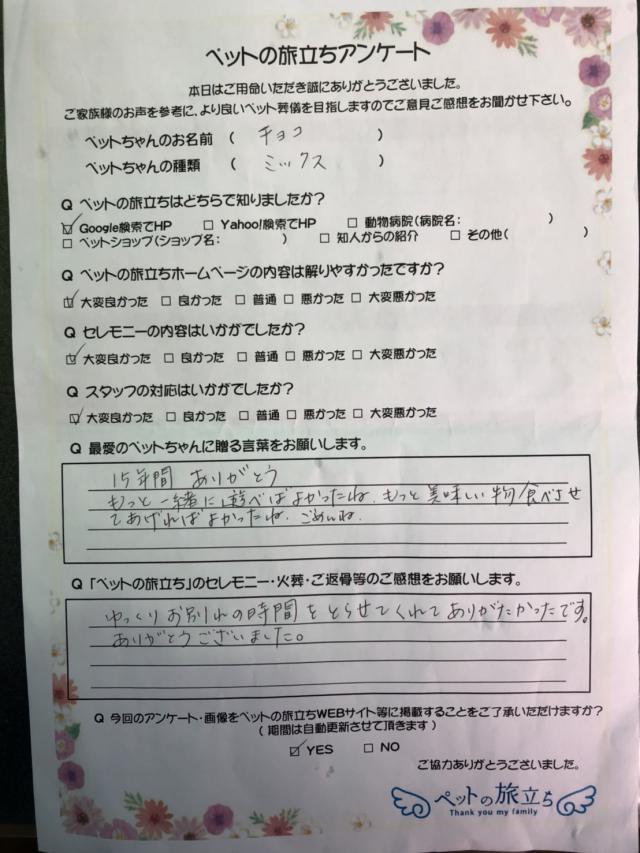 ペットの旅立ちアンケート
本日はご用命いただき誠にありがとうございました。
ご家族様のお声を参考に、より良いペット葬儀を目指しますのでご意見ご感想をお聞かせ下さい。
ペットちゃんのお名前 ( チョコ )
ペットちゃんの種類 ( ミックス )
Q ペットの旅立ちはどちらで知りましたか?
☑ Google検索でHP □ Yahoo!検索でHP □ 動物病院(病院名: )
□ ペットショップ(ショップ名: ) □ 知人からの紹介 □ その他( )
Q ペットの旅立ちホームページの内容は解りやすかったですか?
☑ 大変良かった □ 良かった □ 普通 □ 悪かった □ 大変悪かった
Q セレモニーの内容はいかがでしたか?
☑ 大変良かった □ 良かった □ 普通 □ 悪かった □ 大変悪かった
Q スタッフの対応はいかがでしたか?
☑ 大変良かった □ 良かった □ 普通 □ 悪かった □ 大変悪かった
Q 最愛のペットちゃんに贈る言葉をお願いします。
15年間 ありがとう
もっと一緒に遊べばよかったね、もっと美味しい物食べさせ
てあげればよかったね、ごめんね、
Q 「ペットの旅立ち」のセレモニー・火葬・ご返骨等のご感想をお願いします。
ゆっくりお別れの時間をとらせてくれてありがたかったです。
ありがとうございました。
Q 今回のアンケート・画像をペットの旅立ちWEBサイト等に掲載することをご了承いただけますか?
( 期間は自動更新させて頂きます )
☑ YES □ NO
ご協力ありがとうございました。
ペットの旅立ち
Thank you my family